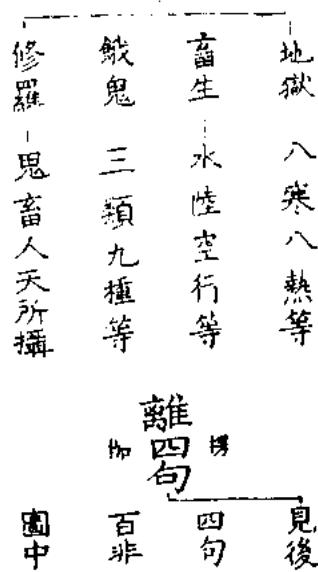 地獄 八寒八熱等
畜生 水陸空行等
餓鬼 三類九種等
修羅 鬼畜人天所攝
離四句
見後
四句
百非
圖中